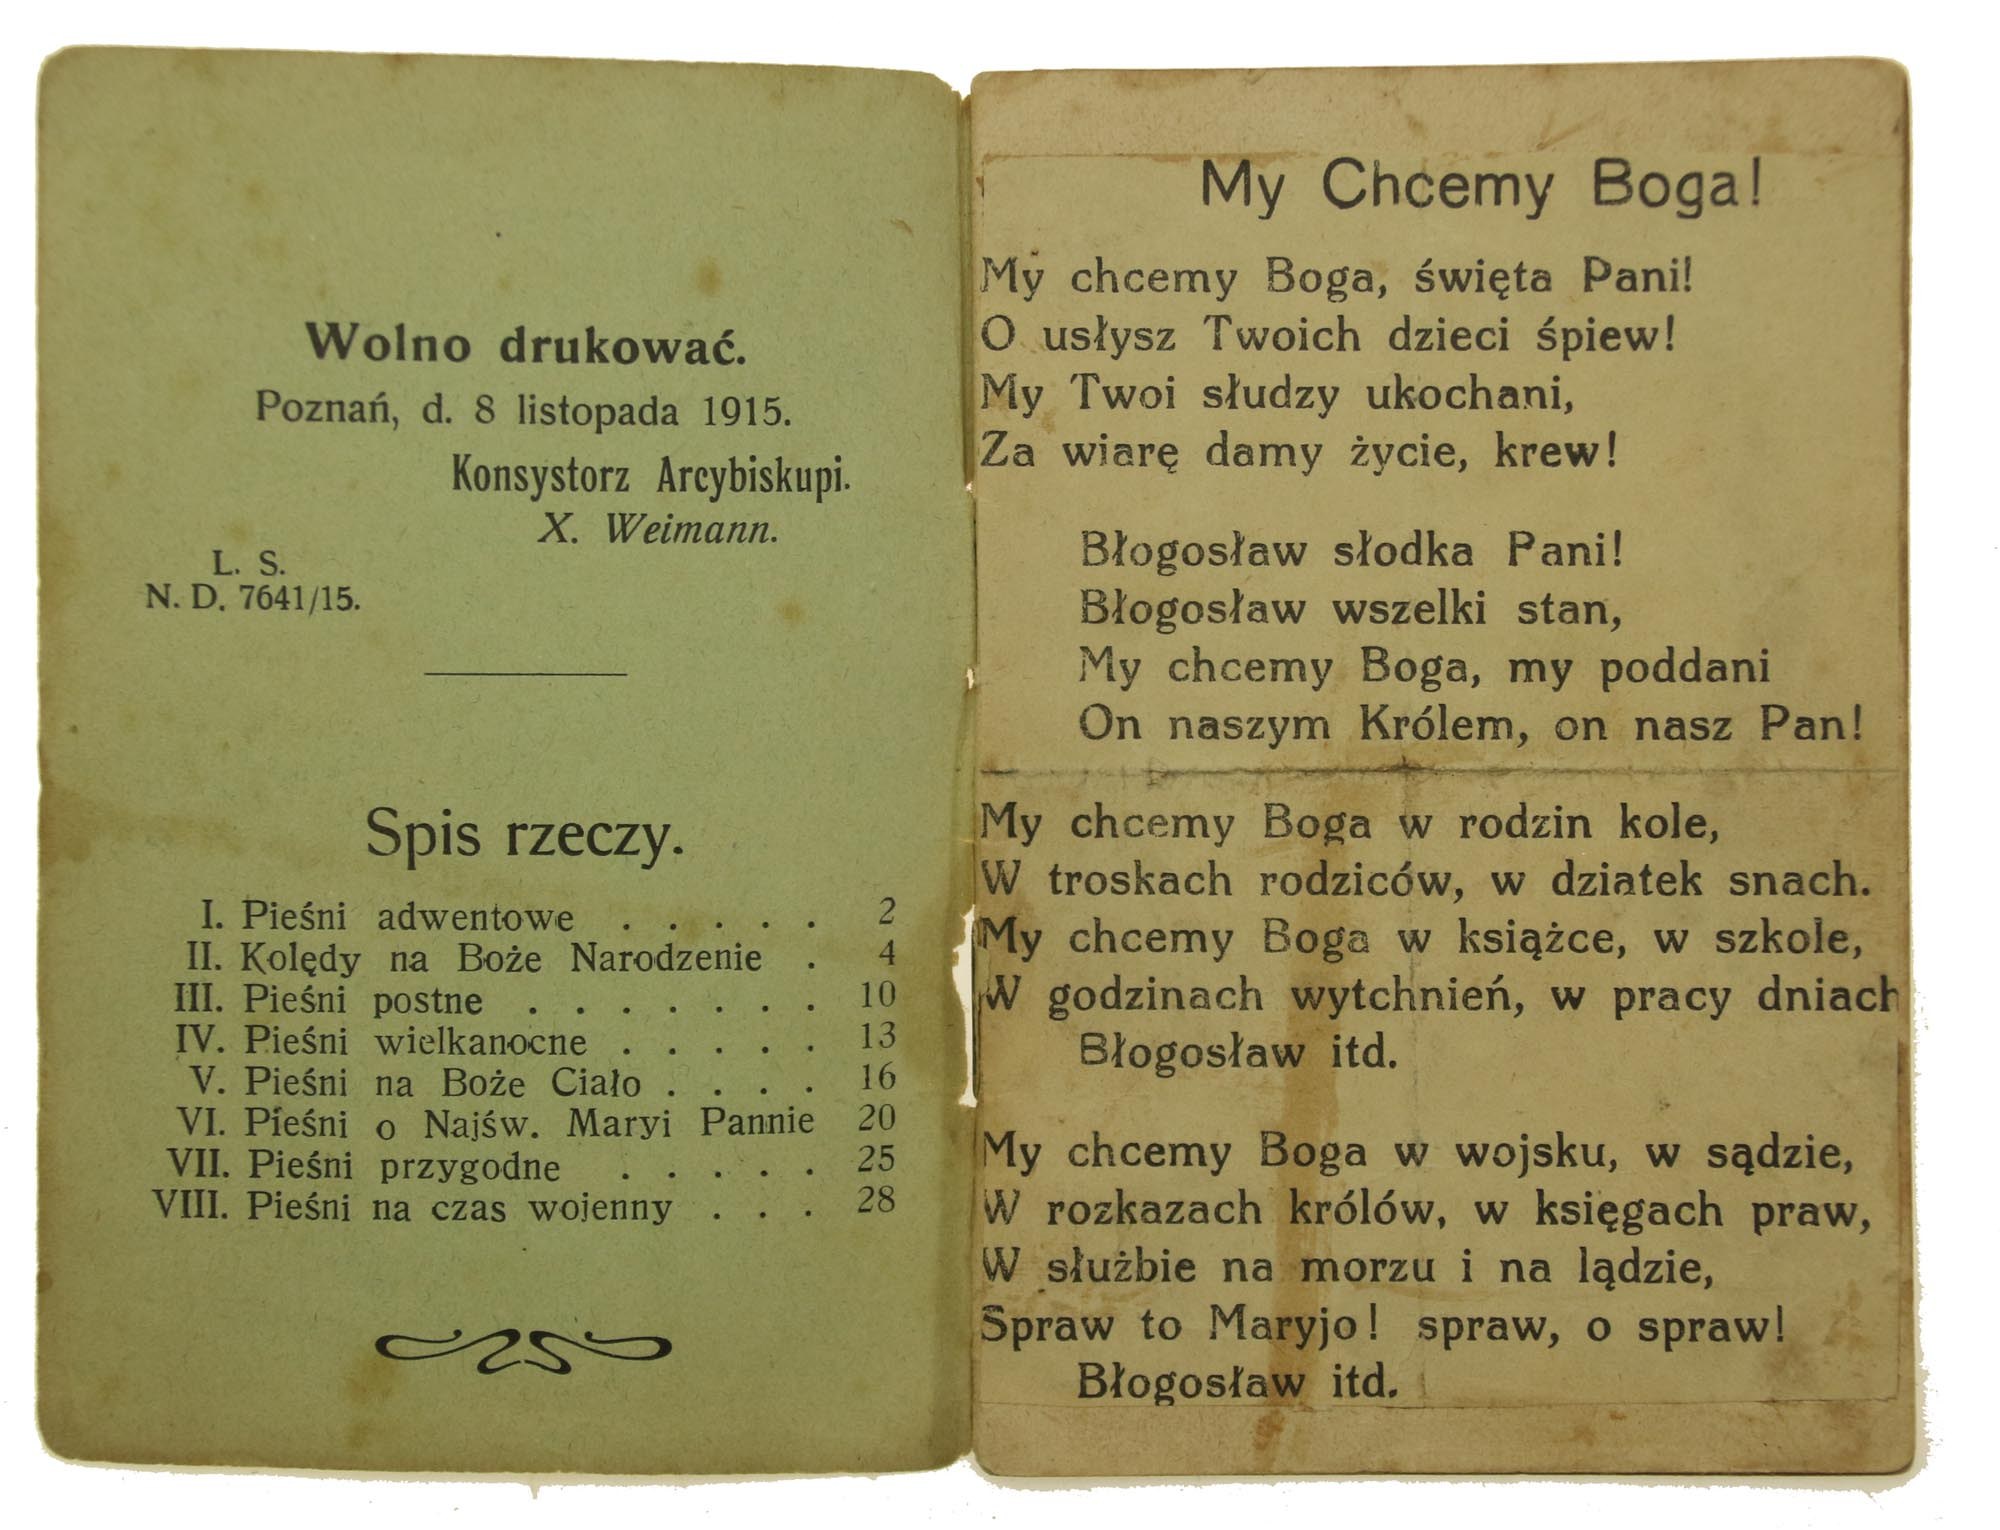 Wolno drukować.
Poznań, d. 8 listopada 1915.
Konsystorz Arcybiskupi.
X. Weimann.
L. S.
N. D. 7641/15.
Spis rzeczy.
I. Pieśni adwentowe . . . . . 2
II. Kolędy na Boże Narodzenie . 4
III. Pieśni postne . . . . . . . 10
IV. Pieśni wielkanocne . . . . . 13
V. Pieśni na Boże Ciało . . . . 16
VI. Pieśni o Najśw. Maryi Pannie 20
VII. Pieśni przygodne . . . . . 25
VIII. Pieśni na czas wojenny . . . 28
My Chcemy Boga!
My chcemy Boga, święta Pani!
O usłysz Twoich dzieci śpiew!
My Twoi słudzy ukochani,
Za wiarę damy życie, krew!
Błogosław słodka Pani!
Błogosław wszelki stan,
My chcemy Boga, my poddani
On naszym Królem, on nasz Pan!
My chcemy Boga w rodzin kole,
W troskach rodziców, w dziatek snach.
My chcemy Boga w książce, w szkole,
W godzinach wytchnień, w pracy dniach
Błogosław itd.
My chcemy Boga w wojsku, w sądzie,
W rozkazach królów, w księgach praw,
W służbie na morzu i na lądzie,
Spraw to Maryjo! spraw, o spraw!
Błogosław itd.